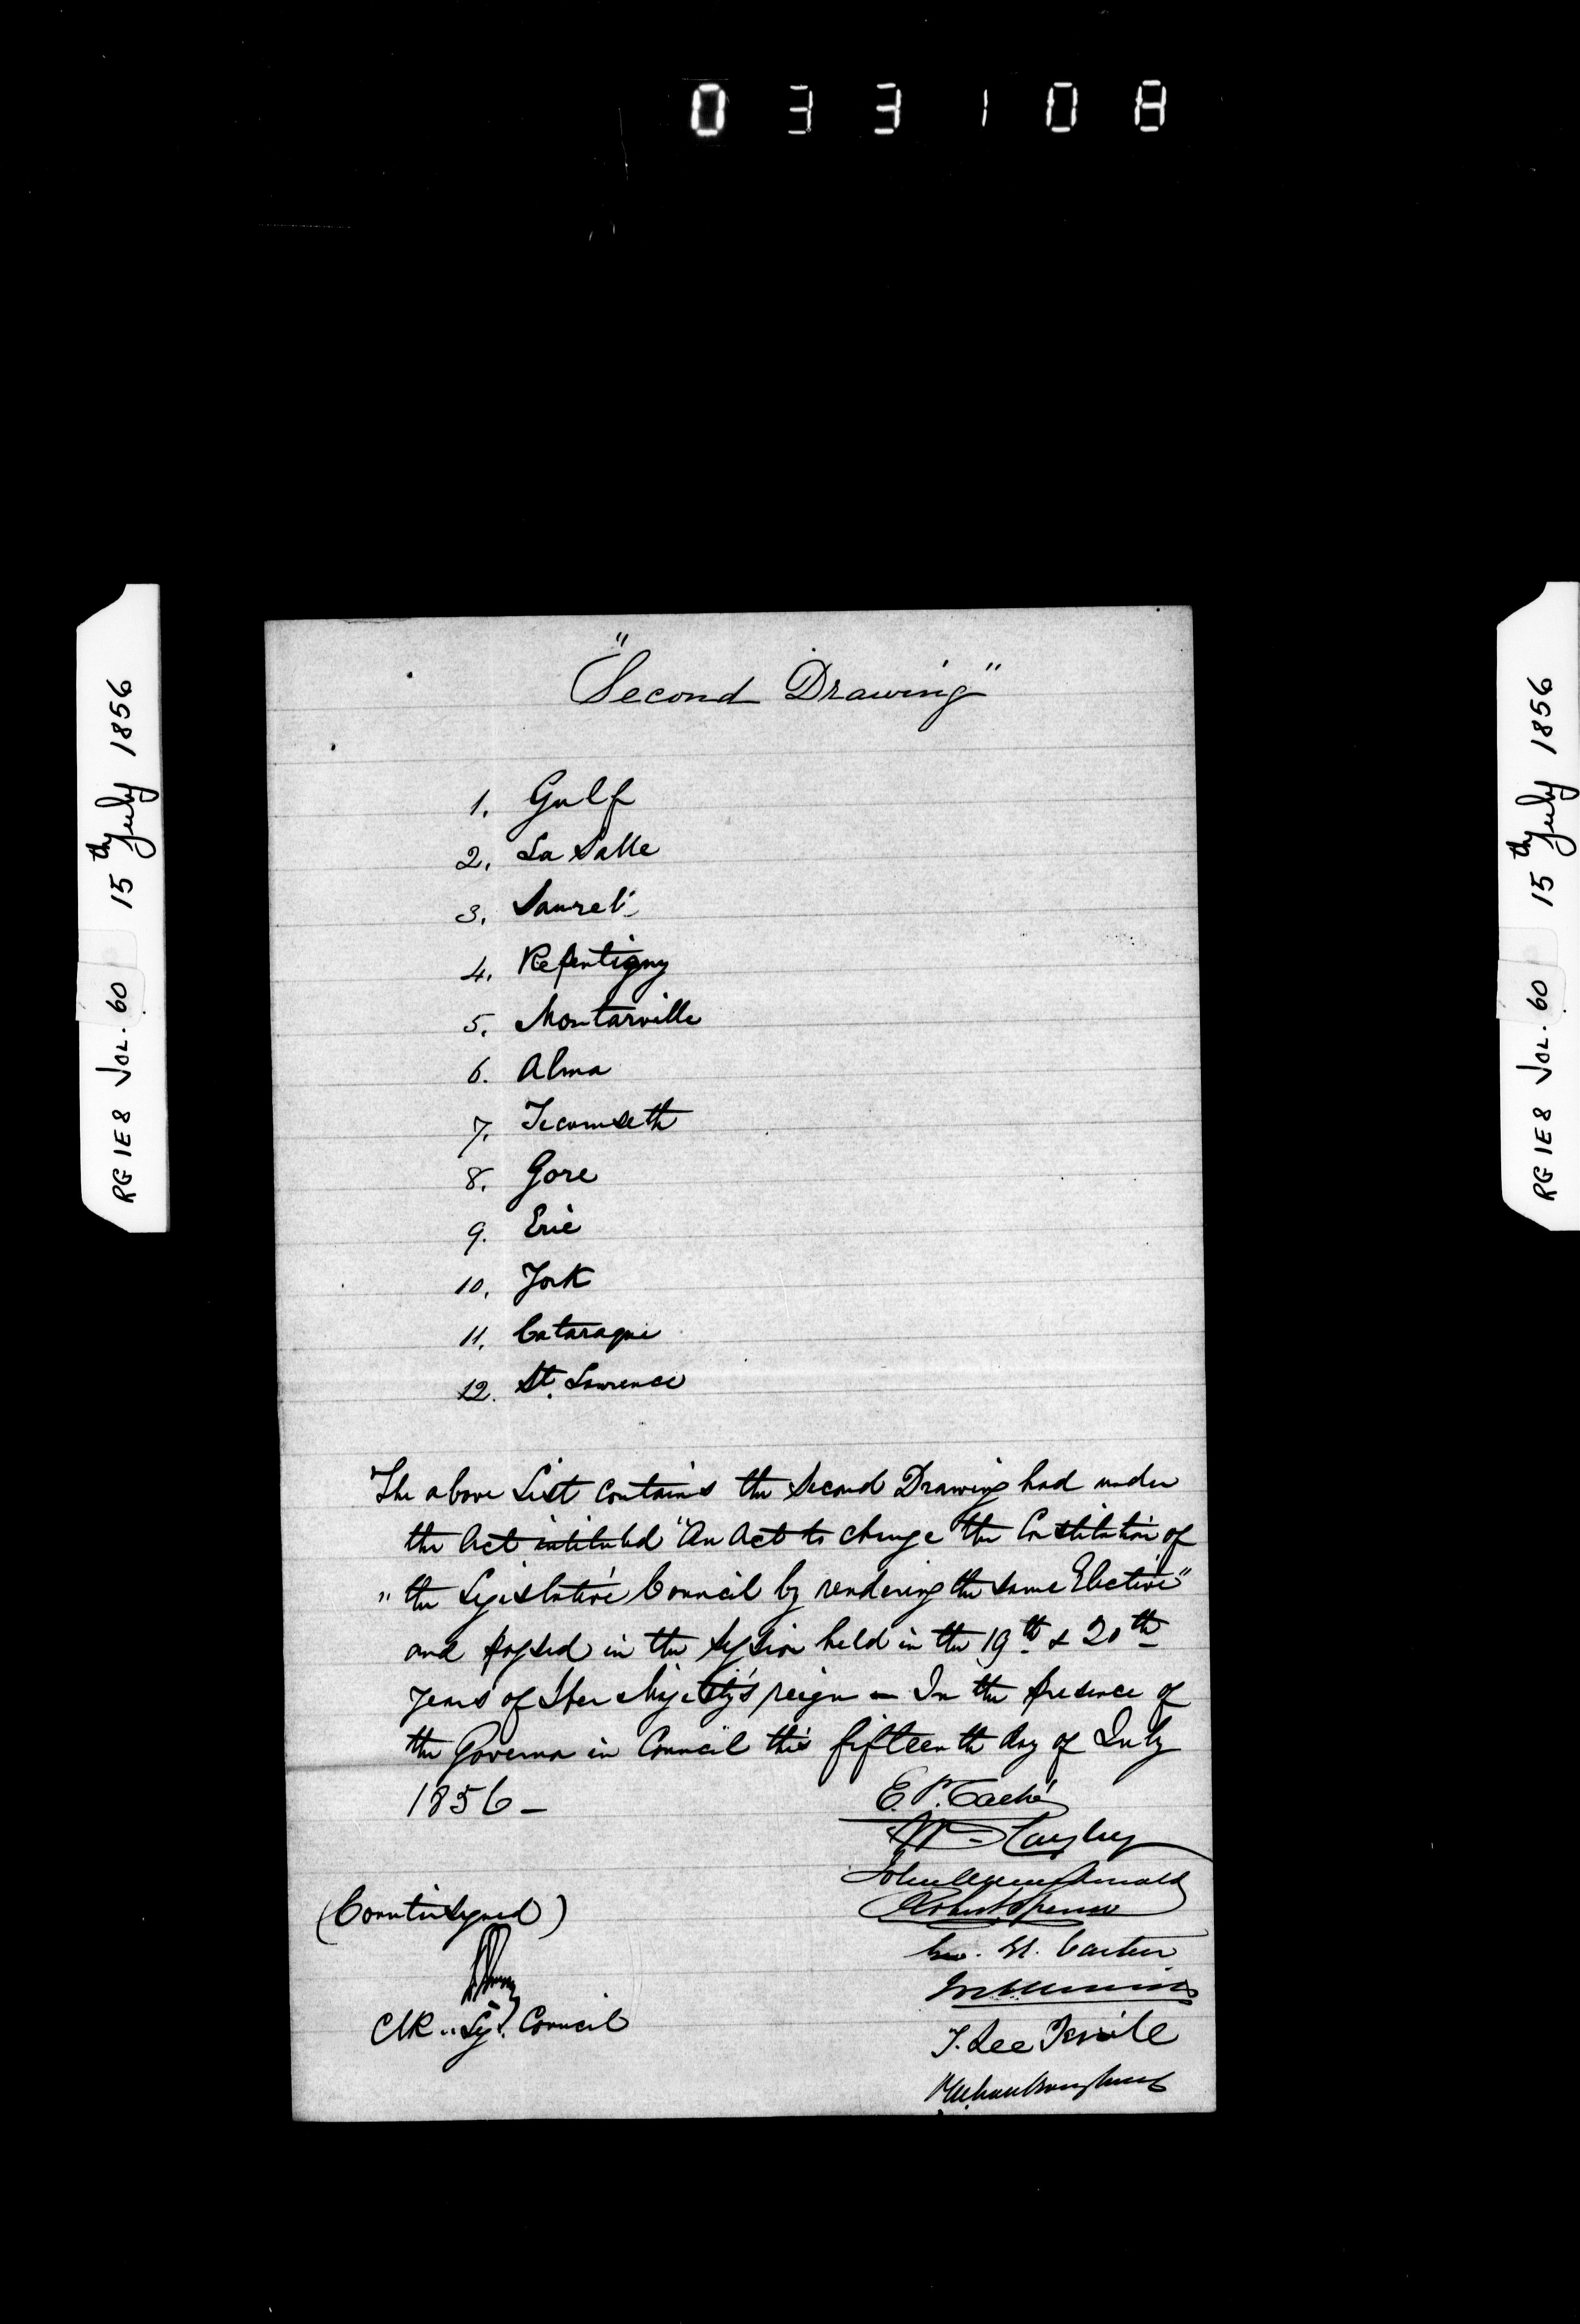 033108
RG 1E8 VOL. 60 15th July 1856
"Second Drawing"
1. Gulf
2. La Salle
3. Saurel
4. Repentigny
5. Montarville
6. Alma
7. Tecumseth
8. Gore
9. Erie
10. York
11. Cataraqui
12. St. Lawrence
The above List contains the Second Drawing had under
the Act intituled "An Act to change the Constitution of
" the Legislative Council by rendering the same Elective"
and passed in the session held in the 19th & 20th
years of Her Majesty's reign — In the presence of
the Governor in Council this fifteenth day of July
1856 —
E. P. Taché
Wm Cayley
John A Macdonald
Robert Spence
Geo. Et. Cartier
T. Lee Terrill
(Countersigned)
Clk .. Leg. Council
RG 1E8 VOL. 60 15th July 1856